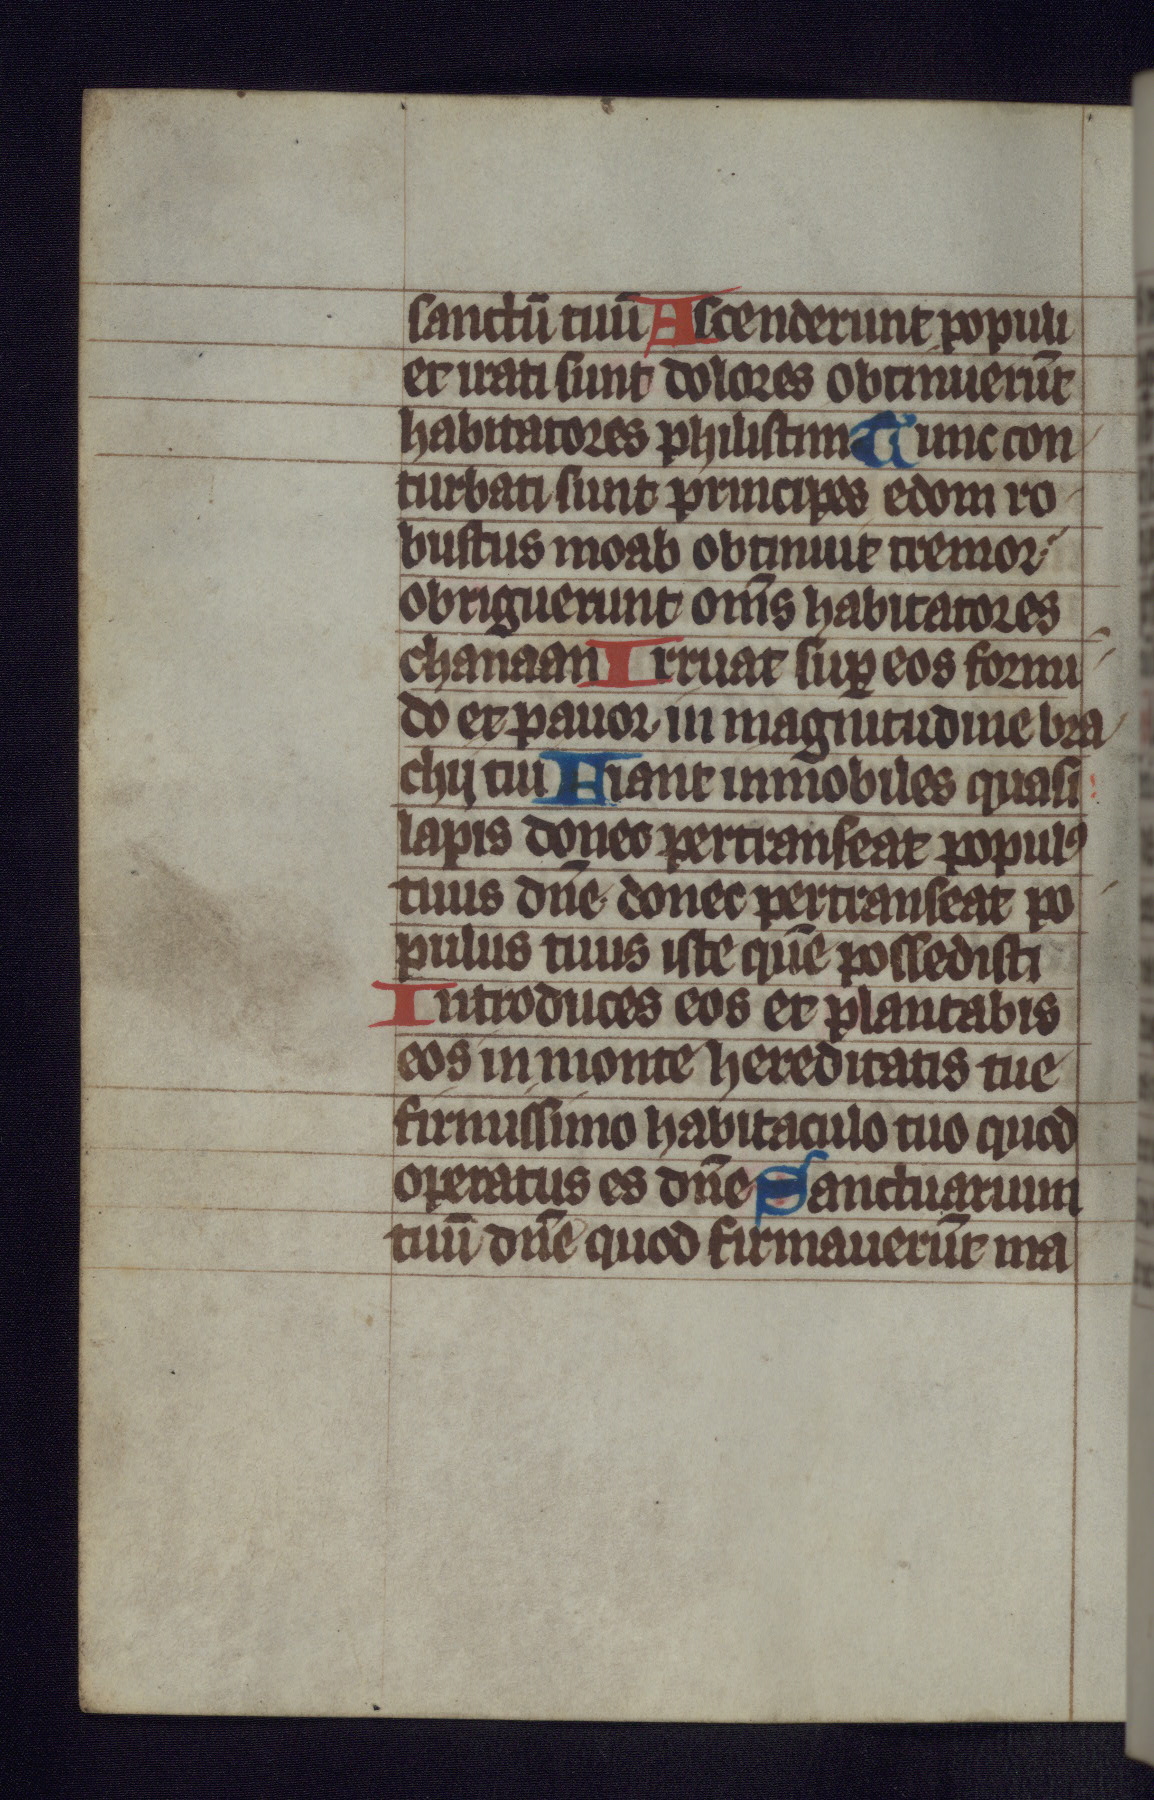 sanctū tuū Ascenderunt populi
et irati sunt dolores obtinuerūt
habitatores philistim Tunc con
turbati sunt principes edom ro
bustus moab obtinuit tremor
obriguerunt om̄s habitatores
chanaan Irruat suꝑ eos formi
do et pauor in magnitudine bra
chij tui Fiant inmobiles quasi
lapis donec pertranseat populꝰ
tuus dn̄e donec pertranseat po
pulus tuus iste quē possedisti
Introduces eos et plantabis
eos in monte hereditatis tue
firmissimo habitaculo tuo quod
operatus es dn̄e Sanctuarium
tuū dn̄e quod firmauerūt ma